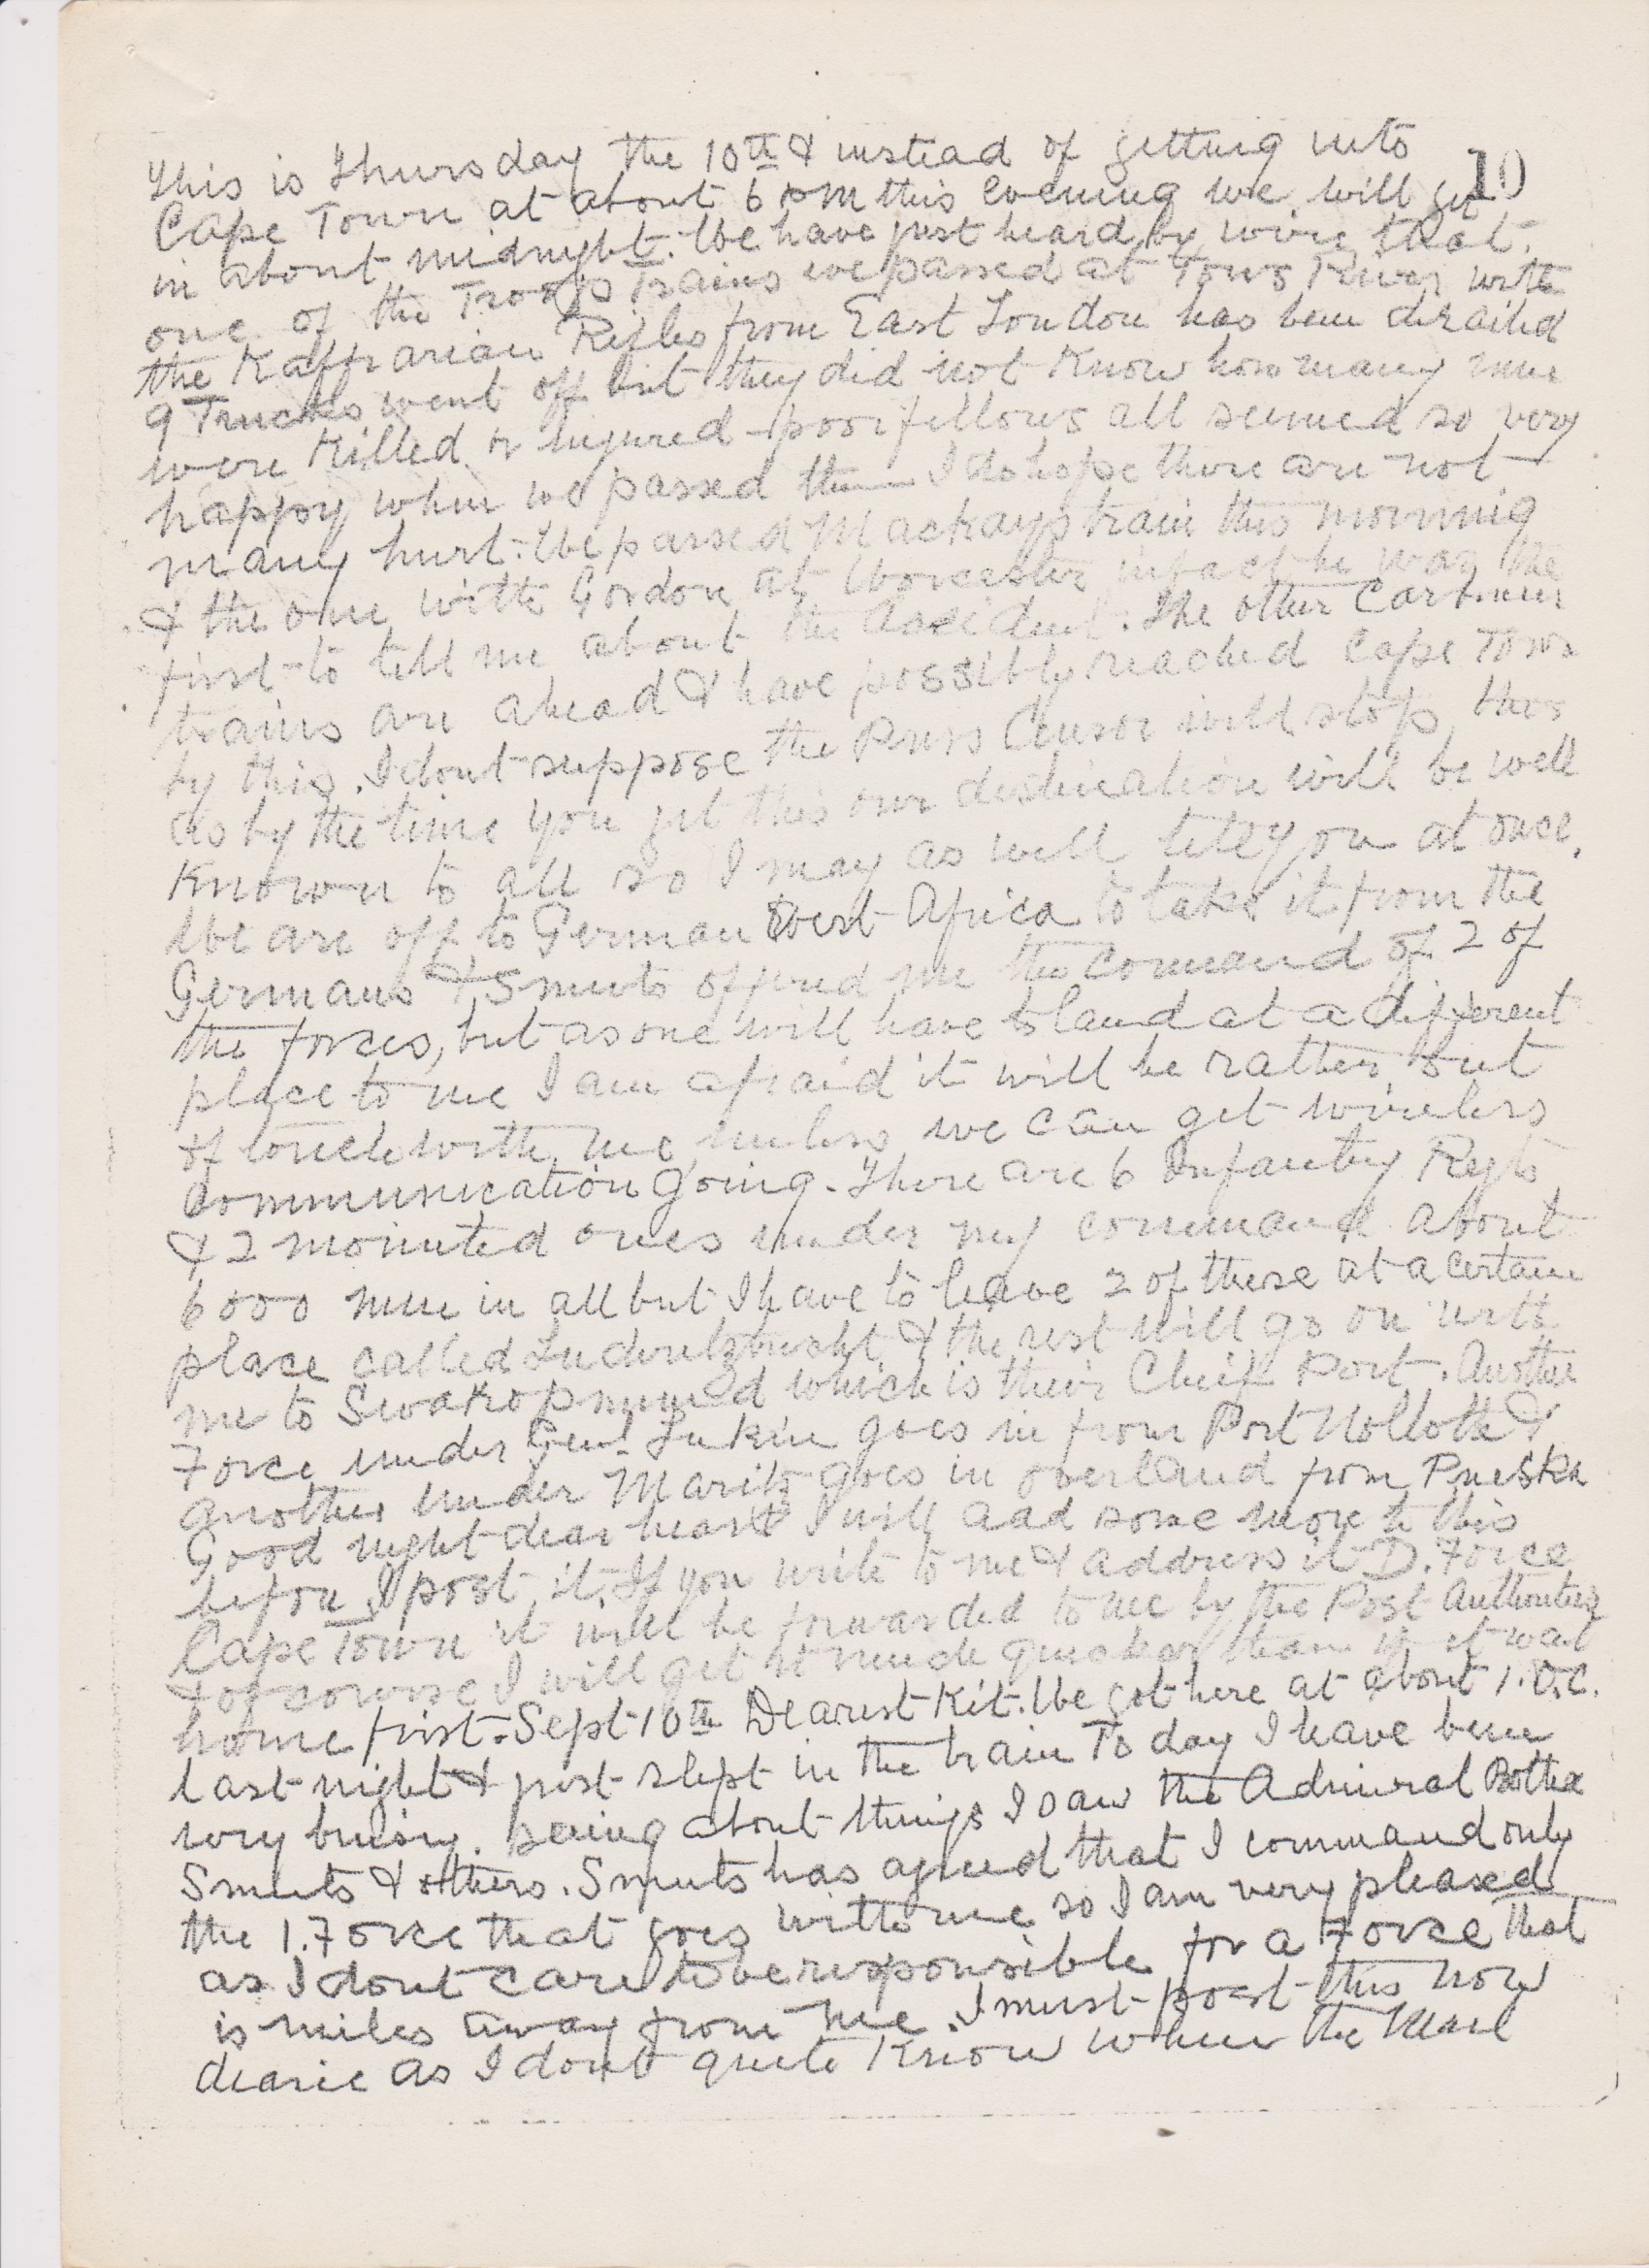 10
This is Thursday the 10th & instead of getting into
Cape Town at about 6 pm this evening we will get
in about midnight. We have just heard by wire that
one of the Troops Trains we passed at Tows River with
the Kaffrarian Rifles from East London has been derailed
9 Trucks went off but they did not know how many men
were killed or injured - poor fellows all seemed so very
happy when we passed them I do hope there are not
many hurt. We passed Mackays train this morning
& the one with Gordon at Worcester in fact he was the
first to tell me about the accident. The other Carbineer
trains are ahead & have possibly reached Cape Town
by this. I dont suppose the Press Censor will stop this
as by the time you get this our destination will be well
known to all so I may as well tell you at once.
We are off to German West Africa to take it from the
Germans & Smuts offered me the command of 2 of
the forces, but as one will have to land at a different
place to me I am afraid it will be rather out
of touch with me unless we can get wireless
communication going. There are 6 Infantry Regts
& 2 mounted ones under my command about
6000 men in all but I have to leave 2 of these at a certain
place called Luderitzbucht & the rest will go on with
me to Swakopmund which is their Chief Port. Another
Force under Genl Lukin goes in from Port Nolloth &
another under Maritz goes in overland from Prieska
Good night dear heart I will add some more to this
before I post it. If you write to me & address it D. Force
Cape Town it will be forwarded to me by the Post Authorities
& of course I will get it much quicker than if it went
home first. Sept 10th Dearest Kit. We got here at about 1. O.C.
last night & just slept in the train To day I have been
very buisy. seeing about things I saw the Admiral Botha
Smuts & others. Smuts has agreed that I command only
the 1. Force that goes with me so I am very pleased
as I dont care to be responsible for a Force that
is miles away from me. I must post this now
dearie as I dont quite know when the Mail